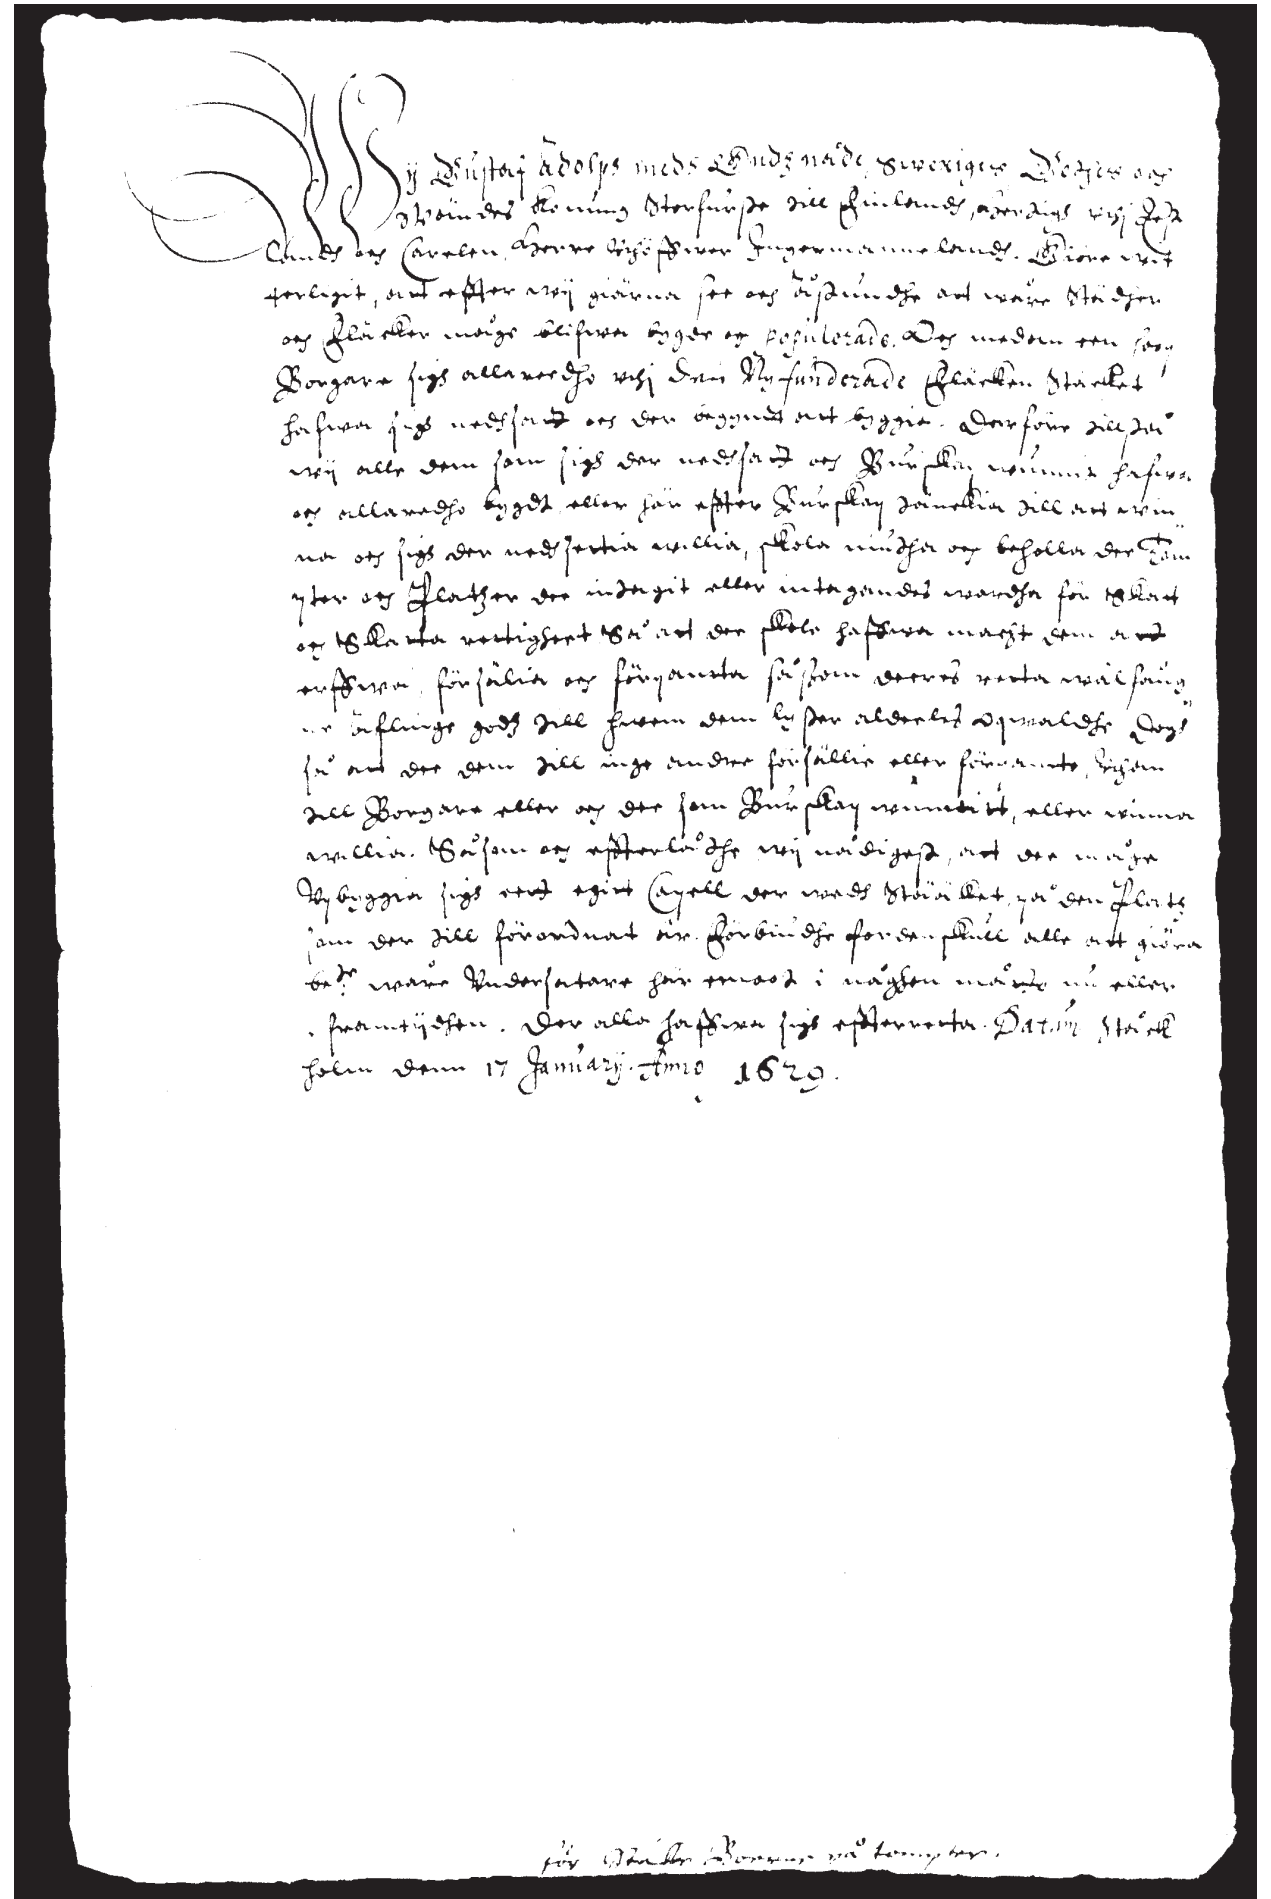 Wij Gustaf Adolph medh Gudz nåde, Sweriges, Göthes och
Wendes Konung Storfurste till Finlandh, Hertigh uthi Est
landh och Carelen, Herre uthöffwer Ingermannelandh. Giöre wit
terligit, att effter wij giärna see och åstundhe att wåre Städher
och Fläcker måge blifwa bygde och populerade. Och medem een hoop
Borgare sigh allaredho uthi den Nyfunderade Fläcken Stäcket
hafwa sigh nedhsatt och der begyndt att byggie. Derföre tillstå
wij alle dem som sigh der nedhsatt och Burskap wunnit hafwa
och allaredho bygdt eller här effter Burskap tänckia till att win
na och sigh der nedhsettia willia, skola niutha och beholla dee Tom
pter och Platzer dee intagit eller intagandes wardha för Skatt
och Skatta rettigheet Så att dee skole haffwa macht dem att
erffwa, försälia och förpantta såsom deeres retta wälfång
ne aflinge godz till hwem dem lyster aldeeles oqwaldhe Dogh
så att dee dem till inge andre försällie eller förpantte, uthan
till Borgare eller och dee som Burskap wunnitt, eller winna
willia. Såsom och effterlåthe wij nådigest, att dee måge
Upbyggia sigh eett egitt Capell der wedh Stääket, på den Platz
som der till förordnat är. Förbiudhe fordenskull alle att giöra
be:te wåre Undersåtare här emoot i någhen måtto nu eller
i framtijdhen. Der alla haffwa sigh effterretta. Datum Stock
holm denn 17 January. Anno 1629.
för Stäke Boerne på tompter.